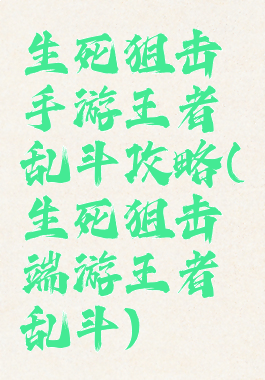 生死狙击
手游王者
乱斗攻略(
生死狙击
端游王者
乱斗)